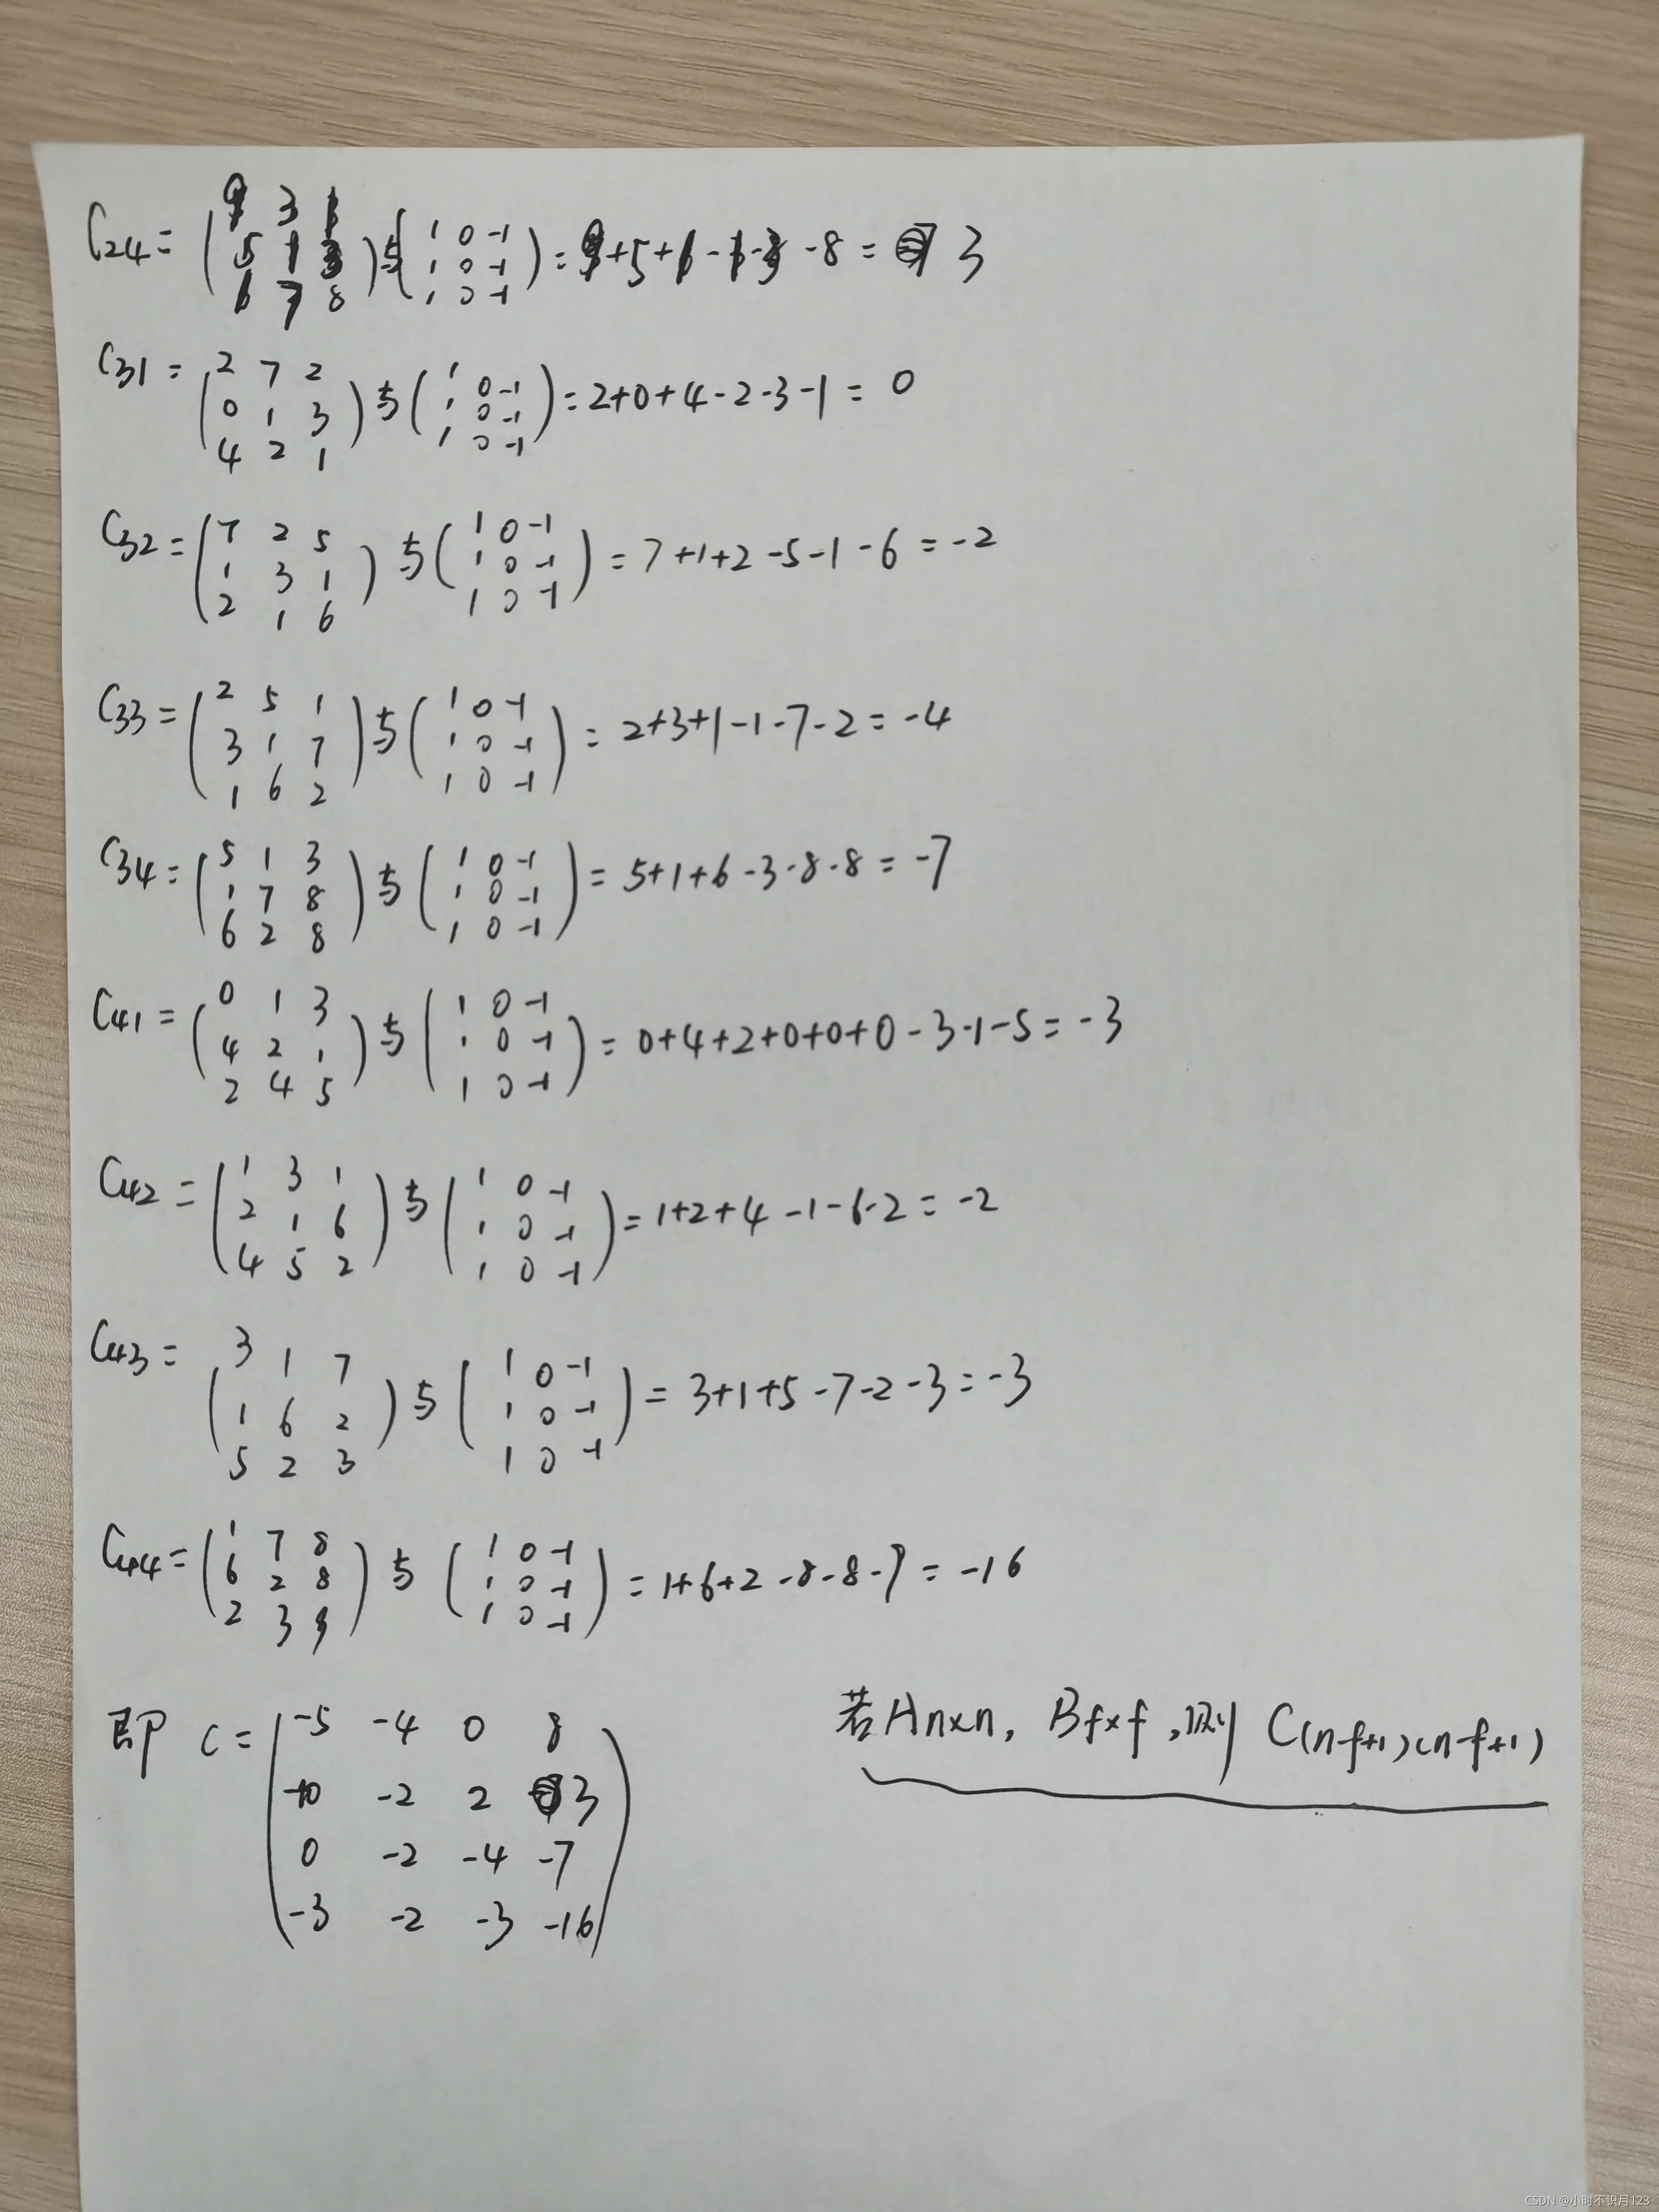 C24 = ( 9 3 1 5 1 3 6 7 8 ) 与 ( 1 0 -1 1 0 -1 1 0 -1 ) = 9+5+ -8 = 3
C31 = ( 2 7 2 0 1 3 4 2 1 ) 与 ( 1 0 -1 1 0 -1 1 0 -1 ) = 2+0+4-2-3-1 = 0
C32 = ( 7 2 5 1 3 1 2 1 6 ) 与 ( 1 0 -1 1 0 -1 1 0 -1 ) = 7+1+2-5-1-6 = -2
C33 = ( 2 5 1 3 1 7 1 6 2 ) 与 ( 1 0 -1 1 0 -1 1 0 -1 ) = 2+3+1-1-7-2 = -4
C34 = ( 5 1 3 1 7 8 6 2 8 ) 与 ( 1 0 -1 1 0 -1 1 0 -1 ) = 5+1+6-3-8-8 = -7
C41 = ( 0 1 3 4 2 1 2 4 5 ) 与 ( 1 0 -1 1 0 -1 1 0 -1 ) = 0+4+2+0+0+0-3-1-5 = -3
C42 = ( 1 3 1 2 1 6 4 5 2 ) 与 ( 1 0 -1 1 0 -1 1 0 -1 ) = 1+2+4-1-6-2 = -2
C43 = ( 3 1 7 1 6 2 5 2 3 ) 与 ( 1 0 -1 1 0 -1 1 0 -1 ) = 3+1+5-7-2-3 = -3
C44 = ( 1 7 8 6 2 8 2 3 9 ) 与 ( 1 0 -1 1 0 -1 1 0 -1 ) = 1+6+2-8-8-9 = -16
若An×n, Bf×f, 则 C(n-f+1)(n-f+1)
即 C = ( -5 -4 0 8
-10 -2 2 3
0 -2 -4 -7
-3 -2 -3 -16 )
CSDN @小时不识月123